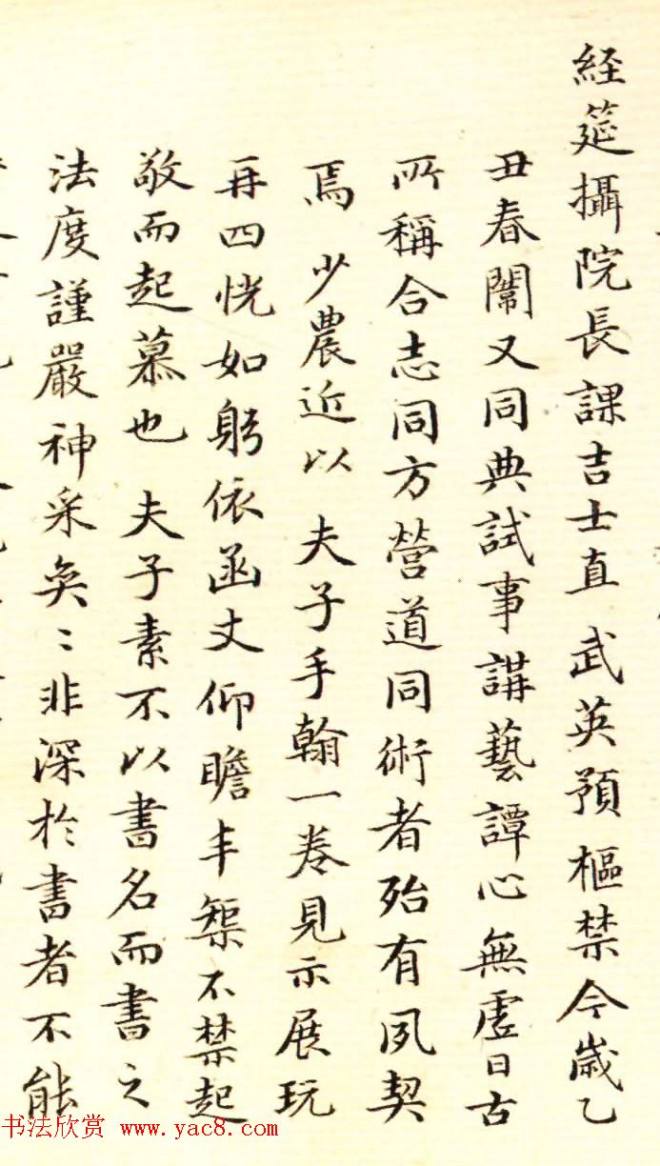 経筵攝院長課吉士直 武英預樞禁今嵗乙
丑春闈又同典試事講藝譚心無虛日古
所稱合志同方營道同術者殆有夙契
焉 少農近以 夫子手翰一卷見示展玩
再四恍如躬依函丈仰瞻丰榘不禁起
敬而起慕也 夫子素不以書名而書之
法度謹嚴神采奐〻非深於書者不能
书法欣赏 www.yac8.com